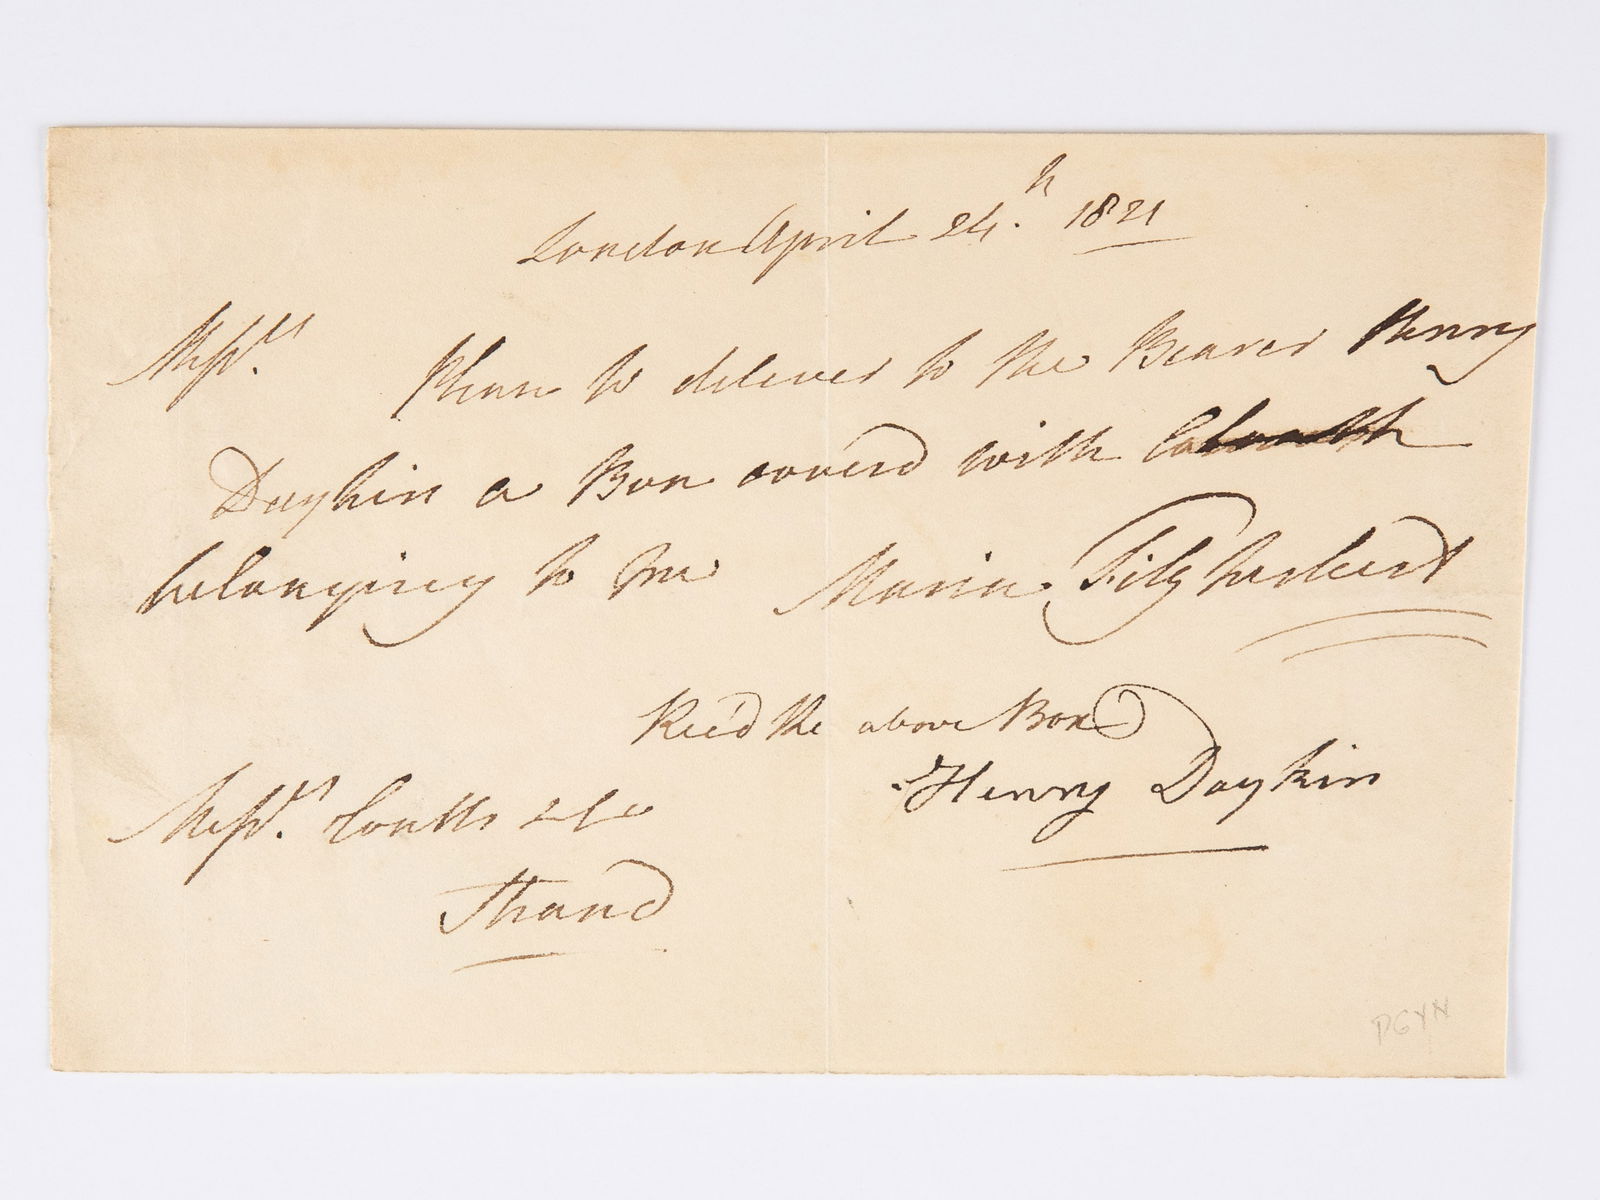 London April 24.h 1821
Messrs.
Please to deliver to the Bearer Henry
Daykin a Box cover'd with
belonging to me Maria Fitzherbert
Rec'd the above Box
Henry Daykin
Messrs. Coutts & Co
Strand
PGYN